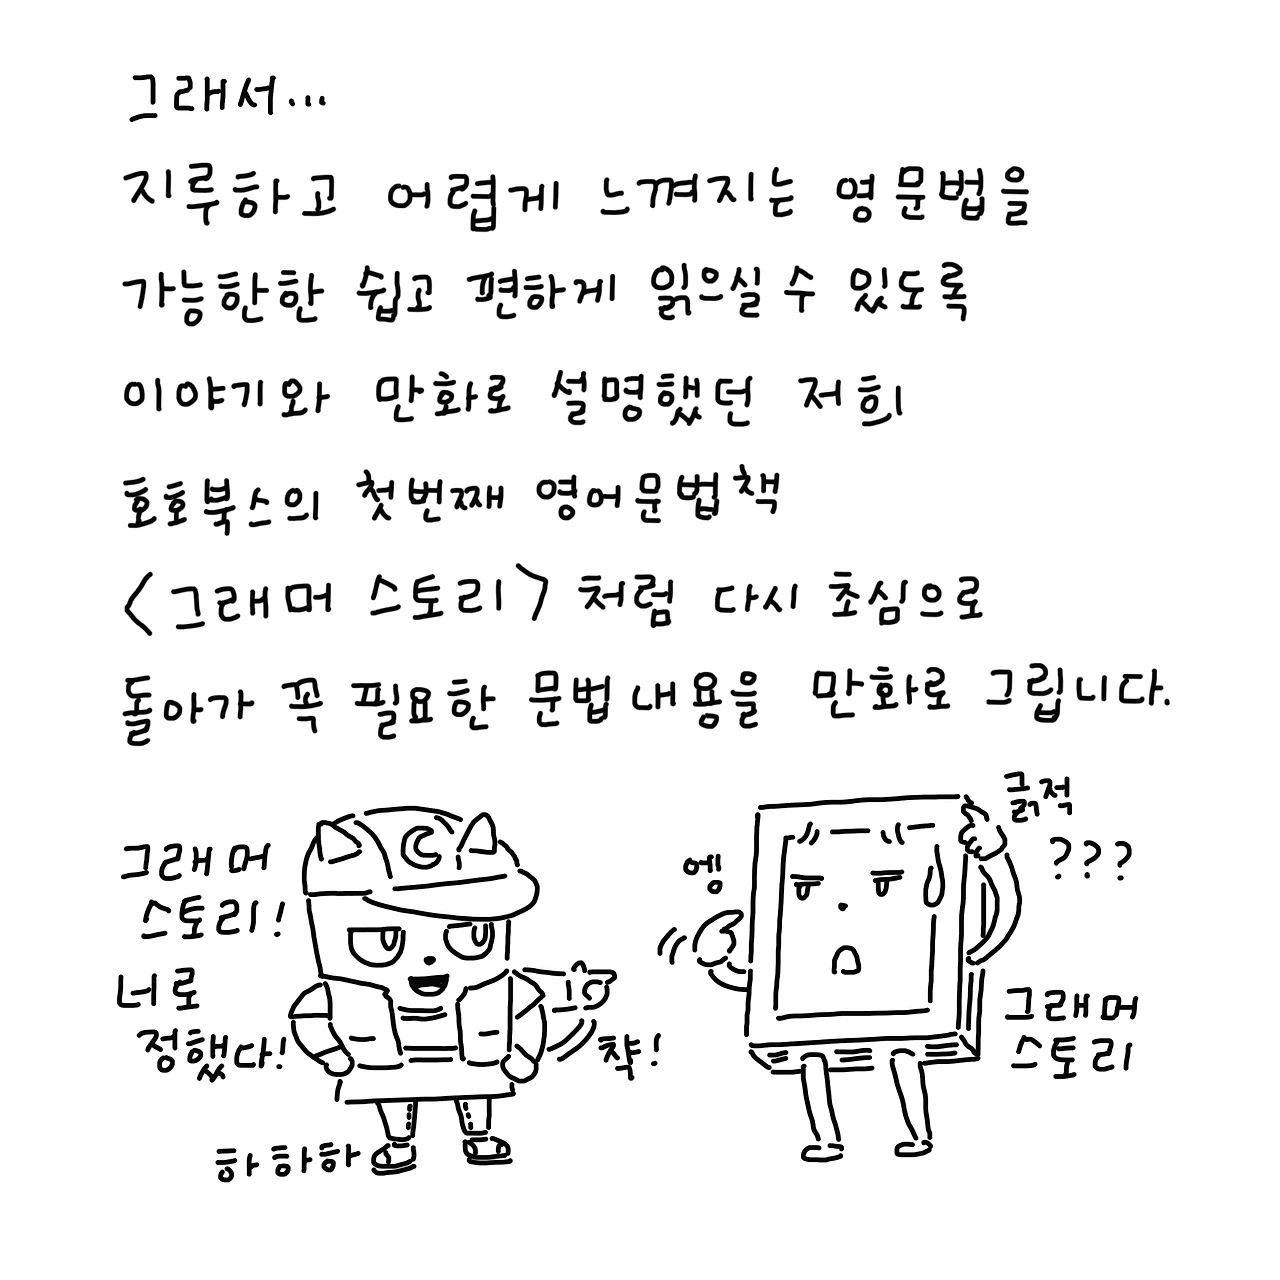 그래서...
지루하고 어렵게 느껴지는 영문법을
가능한한 쉽고 편하게 읽으실 수 있도록
이야기와 만화로 설명했던 저희
호호북스의 첫번째 영어문법책
<그래머 스토리>처럼 다시 초심으로
돌아가 꼭 필요한 문법 내용을 만화로 그립니다.
그래머
스토리!
너로
정했다!
하하하
챡!
엥
긁적
???
그래머
스토리